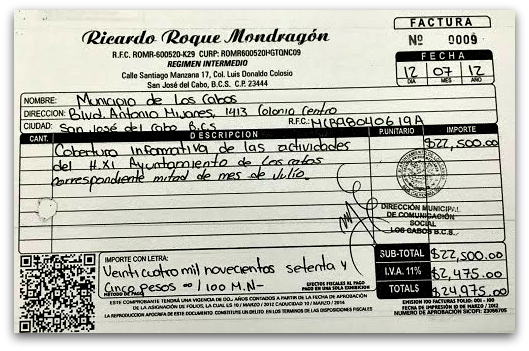 FACTURA
Ricardo Roque Mondragón
Nº 0009
R.F.C. ROMR-600520-K29 CURP: ROMR600520HGTQNC09
REGIMEN INTERMEDIO
FECHA
Calle Santiago Manzana 17, Col. Luis Donaldo Colosio
San José del Cabo, B.C.S. C.P. 23444
12 07 12
DIA MES AÑO
NOMBRE: Municipio de Los Cabos
DIRECCION: Blvd. Antonio Mijares, 1413 Colonia Centro
CIUDAD: San José del Cabo B.C.S. R.F.C.:
CANT. DESCRIPCION P.UNITARIO IMPORTE
Cobertura informativa de las actividades $22,500.00
del H.XI Ayuntamiento de Los Cabos
correspondiente mitad de mes de Julio.
DIRECCIÓN MUNICIPAL
DE COMUNICACIÓN
SOCIAL
LOS CABOS B.C.S.
IMPORTE CON LETRA: SUB-TOTAL $22,500.00
Veinticuatro mil novecientos setenta y I.V.A. 11% $2,475.00
Cinco pesos 00/100 M.N- TOTAL $ $24,975.00
METODO DE PAGO
EFECTOS FISCALES AL PAGO
PAGO EN UNA SOLA EXHIBICION
ESTE COMPROBANTE TENDRÁ UNA VIGENCIA DE DOS AÑOS CONTADOS A PARTIR DE LA FECHA DE APROBACIÓN
DE LA ASIGNACIÓN DE FOLIOS, LA CUAL ES 10 / MARZO / 2012 CADUCIDAD 10 / MARZO / 2014
LA REPRODUCCION APOCRIFA DE ESTE DOCUMENTO, CONSTITUYE UN DELITO. EN LOS TERMINOS DE LAS DISPOSICIONES FISCALES
EMISIÓN 100 FACTURAS FOLIO: 001 - 100
FECHA DE IMPRESIÓN 10 DE MARZO / 2012
NUMERO DE APROBACIÓN SICOFI: